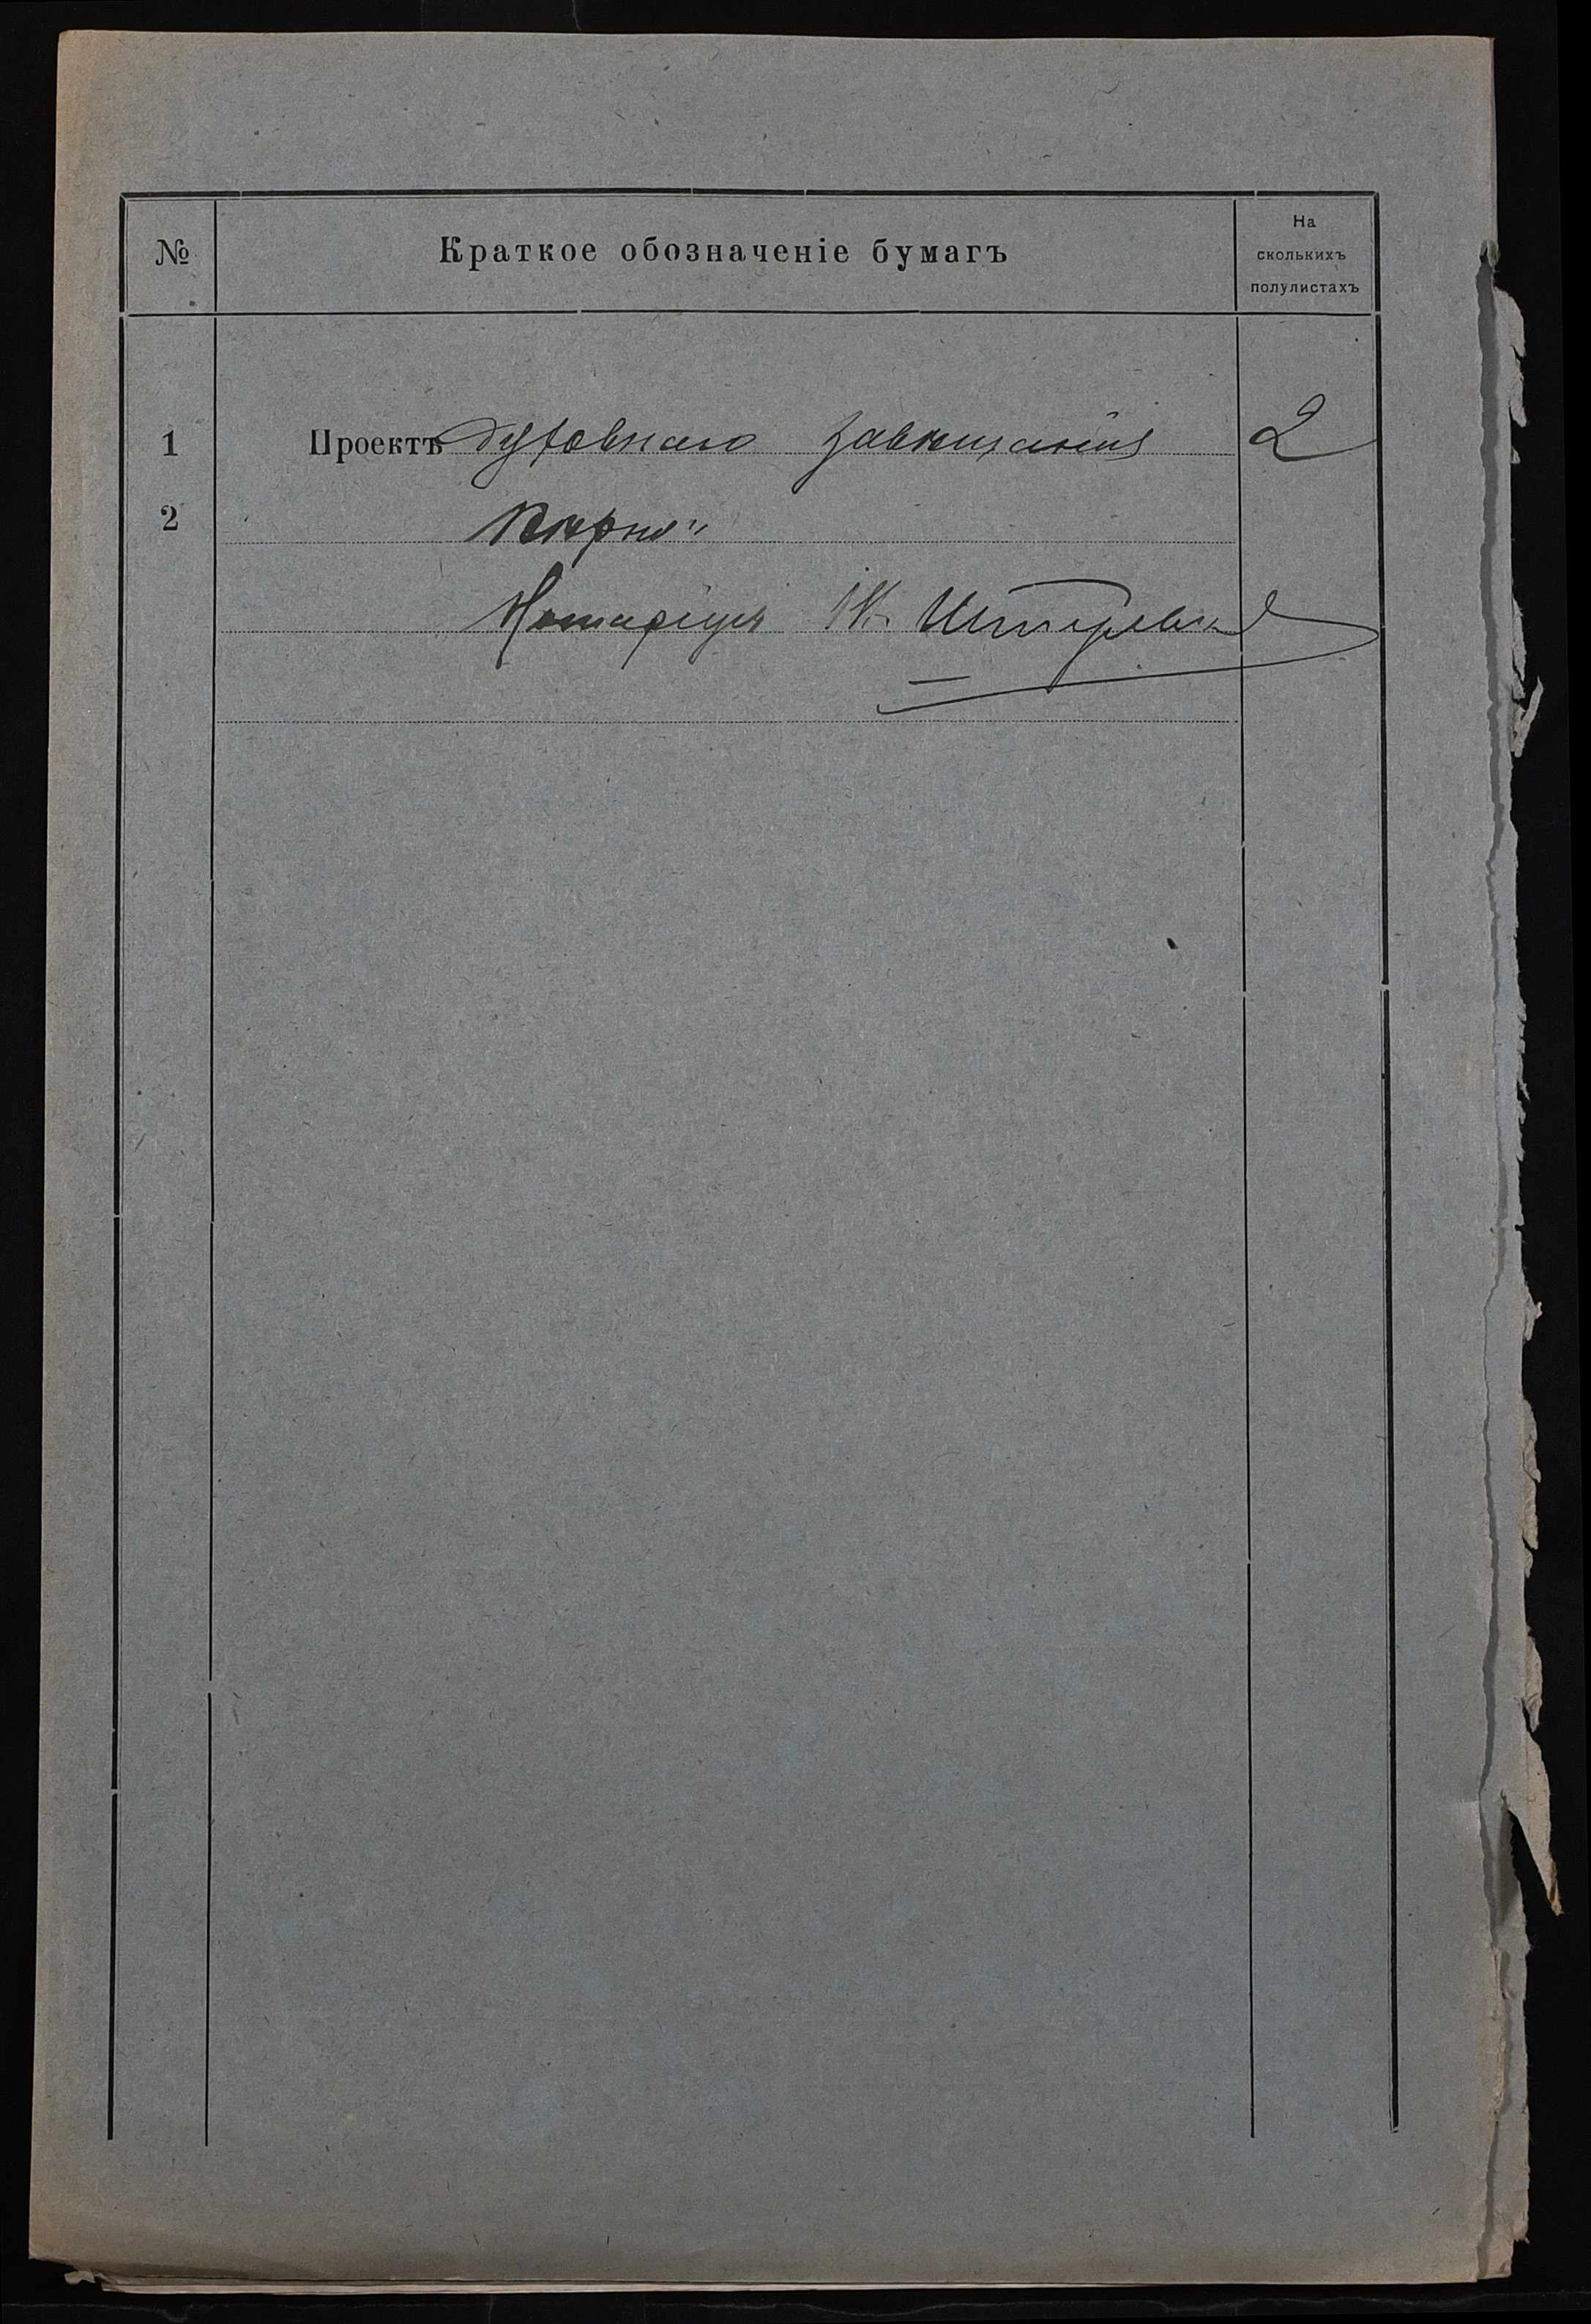 №
Краткое обозначеніе бумагъ
На
сколькихъ
полулистахъ
1 Проектъ духовнаго завѣщанія 2
2 Вѣрно:
Нотаріусъ